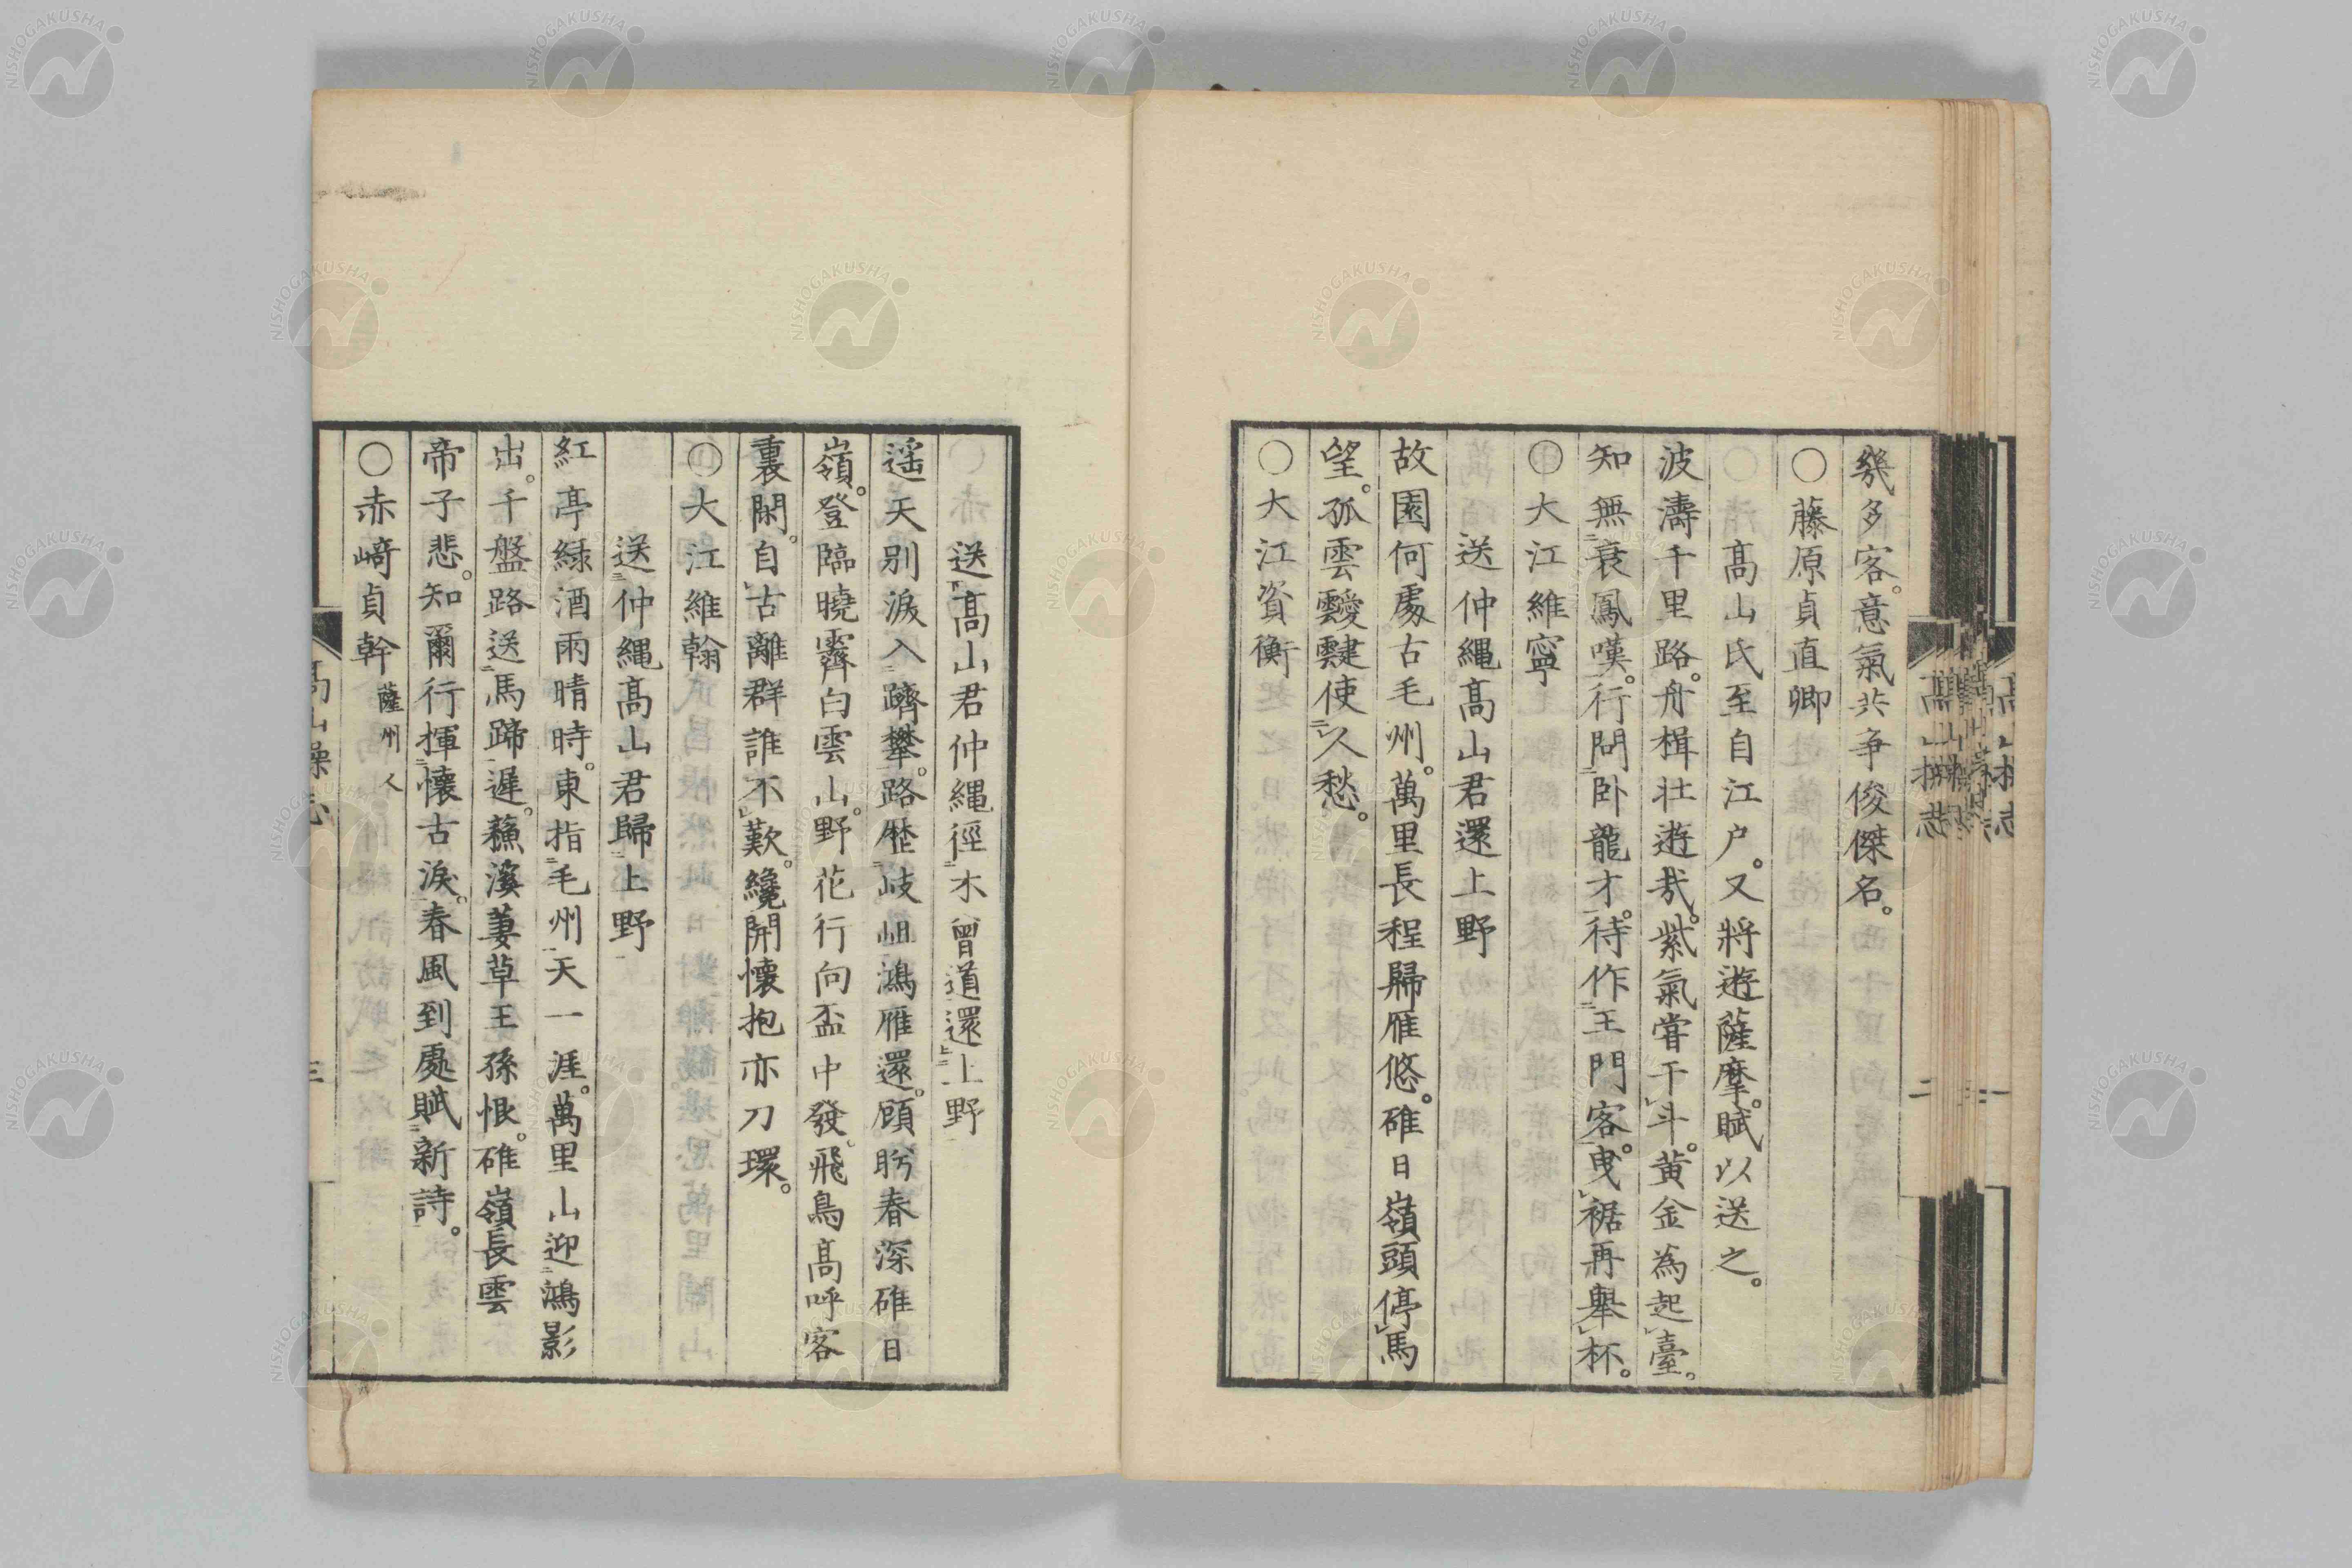 幾多客。意氣共爭俊傑名。
○藤原貞直卿
高山氏至自江户。又將遊薩摩。賦以送之。
波濤千里路。舟楫壮遊哉。紫氣嘗干斗。黄金為起臺。
知無衰鳳嘆。行問卧龍才。待作王門客。曳裾再舉杯。
○大江維寧
送仲縄高山君還上野
故園何處古毛州。萬里長程歸雁悠。碓日嶺頭停馬
望。孤雲靉靆使人愁。
○大江資衡
送高山君仲縄徑木曾道還上野
遥天別淚入躋攀。路歴岐岨鴻雁還。頋眄春深碓日
嶺。登臨曉霽白雲山。野花行向盃中發。飛鳥高呼客
裏閑。自古離群誰不歎。纔開懷抱亦刀環。
○大江維翰
送仲縄高山君歸上野
紅亭緑酒雨晴時。東指毛州天一涯。萬里山迎鴻影
出。千盤路送馬蹄遲。蘓溪萋草王孫恨。碓嶺長雲
帝子悲。知爾行揮懷古淚。春風到處賦新詩。
○赤﨑貞幹 薩州人
高山操志
三
NISHOGAKUSHA